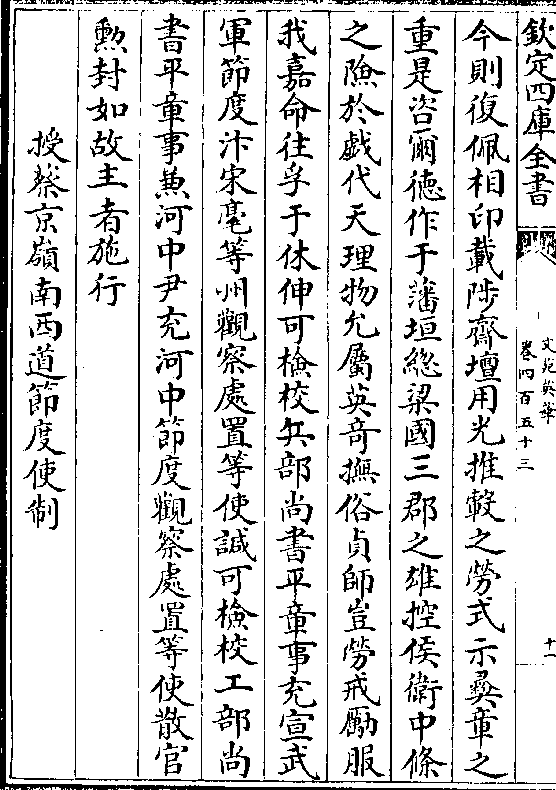 欽定四庫全書
文苑英華
卷四百五十三
十一
今則復佩相印載陟齋壇用光推轂之勞式示彞章之
重是咨爾德作于藩垣總梁國三郡之雄控侯衛中條
之險於戲代天理物允屬英奇撫俗貞師豈勞戒勵服
我嘉命往孚于休伸可檢校兵部尚書平章事充宣武
軍節度汴宋亳等州觀察處置等使諴可檢校工部尚
書平章事兼河中尹充河中節度觀察處置等使散官
勲封如故主者施行
授蔡京嶺南西道節度使制